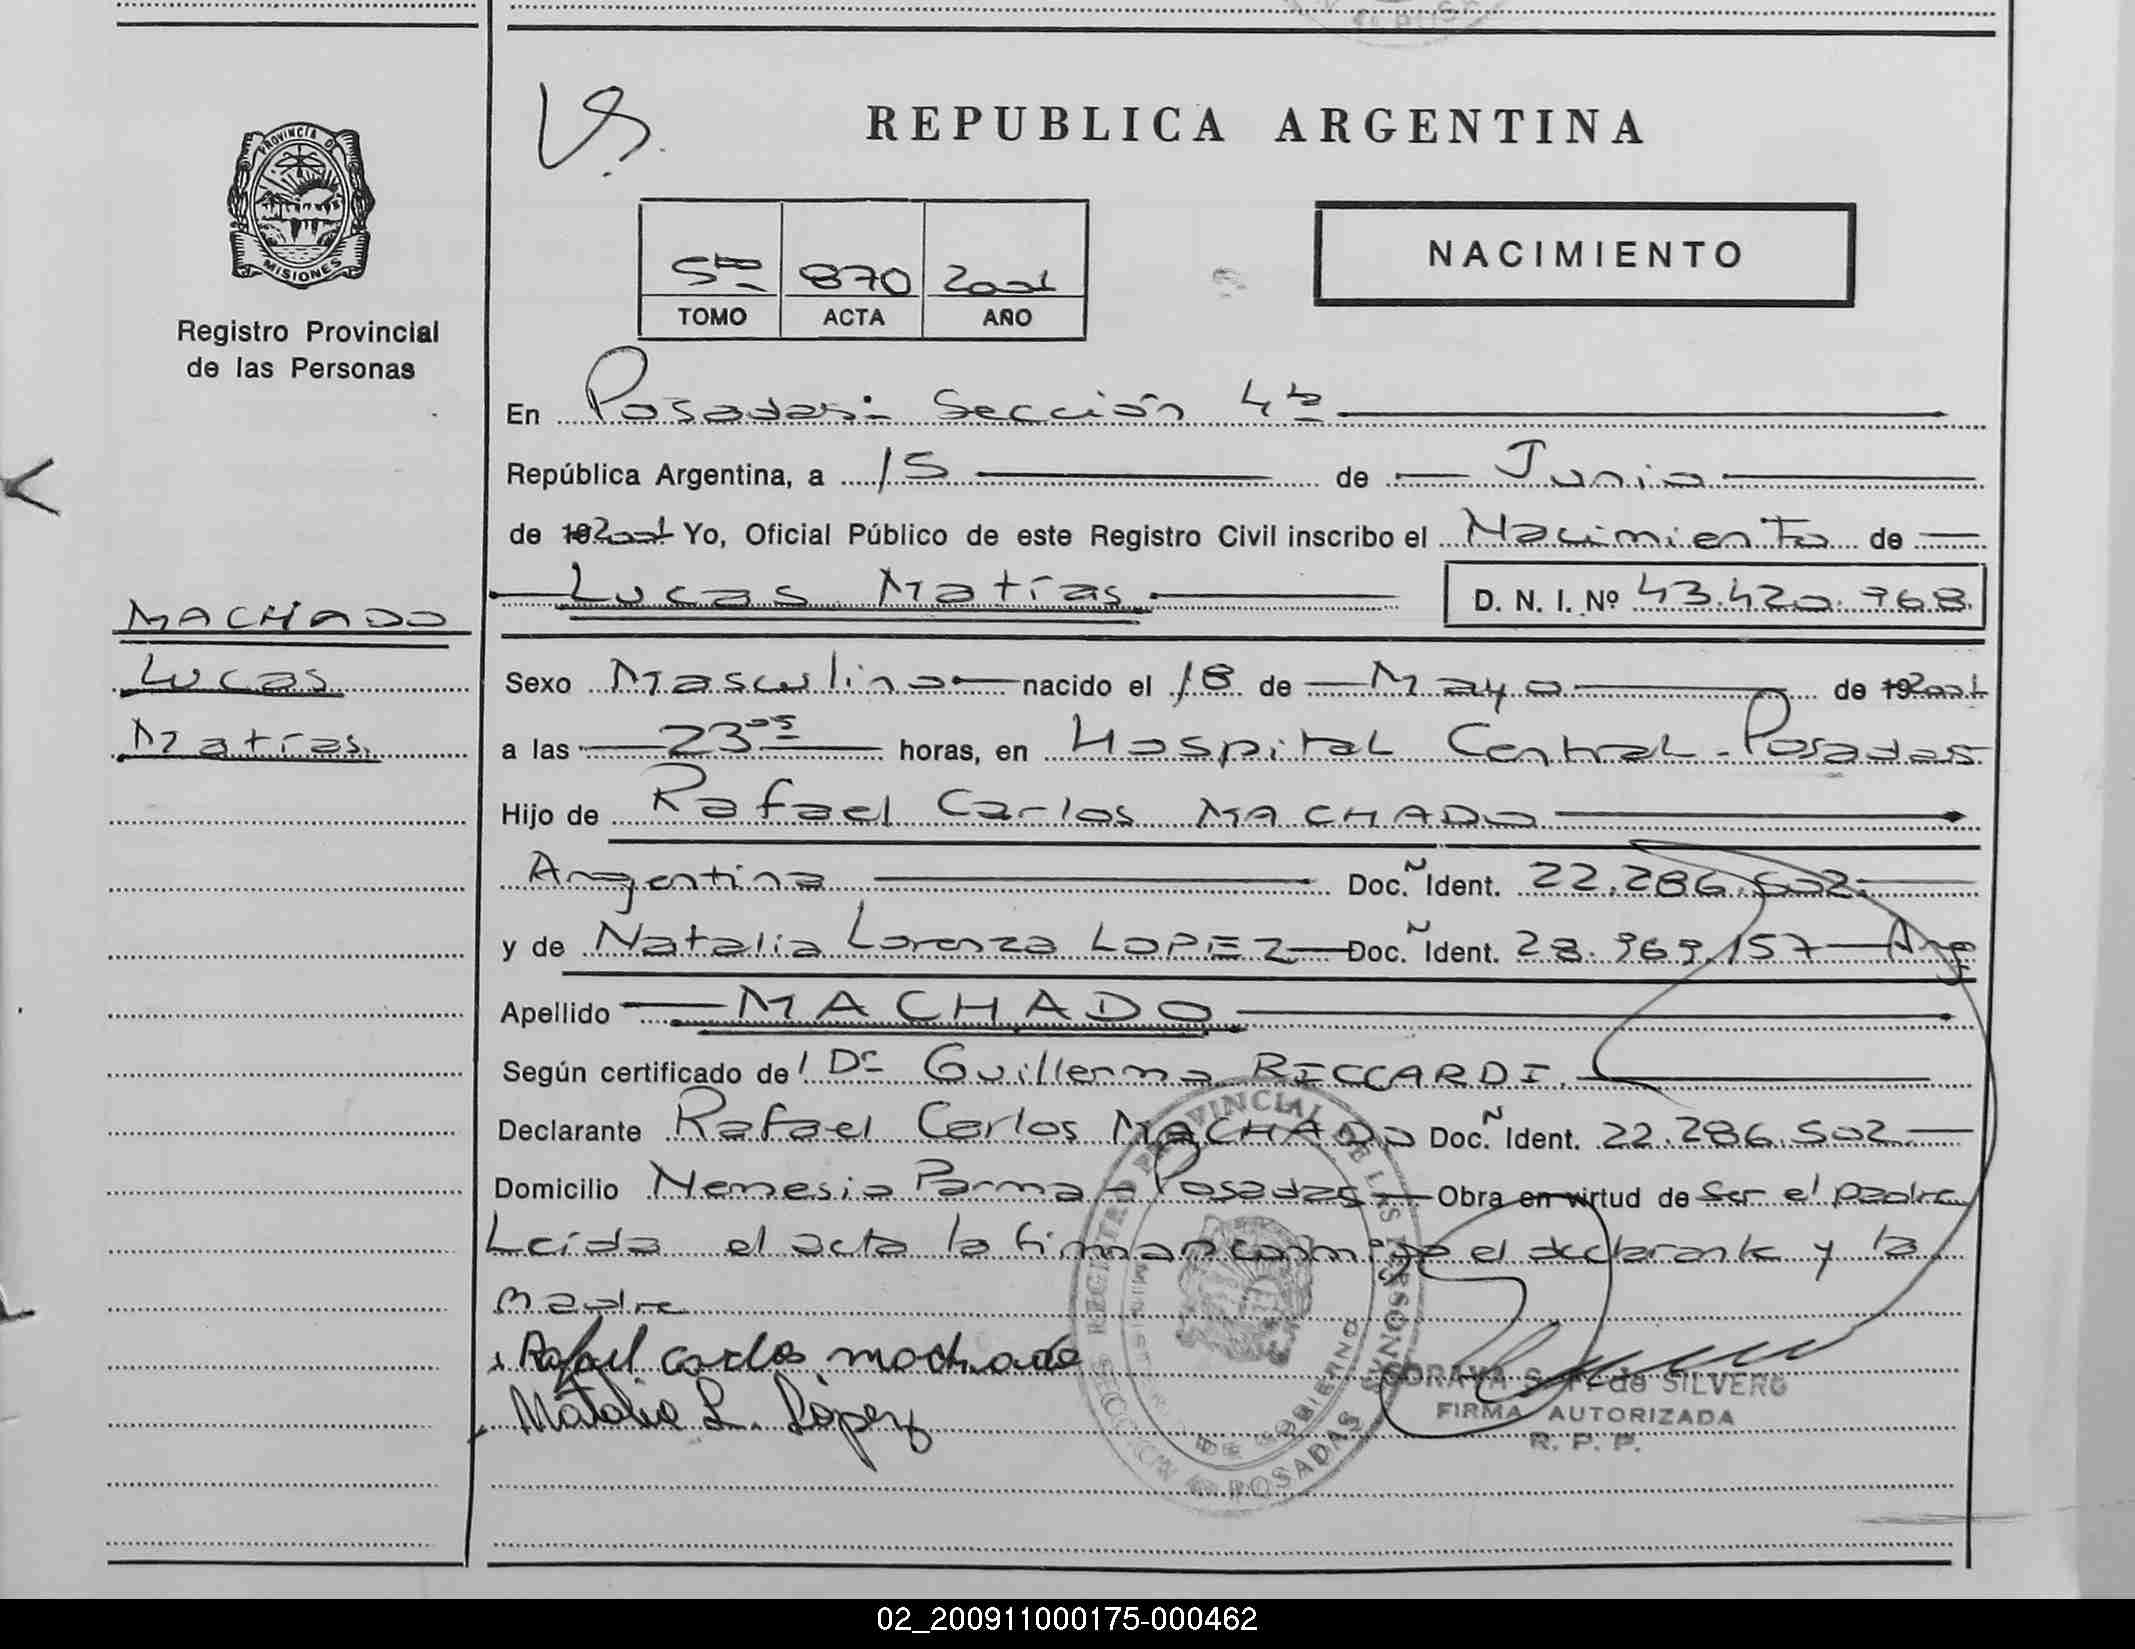 REPUBLICA ARGENTINA
PROVINCIA DE
MISIONES
Registro Provincial
de las Personas
5to 870 2001
TOMO ACTA AÑO
NACIMIENTO
En Posadas- Sección 4ta
República Argentina, a 15 de Junio
de 19 2001 Yo, Oficial Público de este Registro Civil inscribo el Nacimiento de
Lucas Matías D. N. I. Nº 43.420.968.
MACHADO
Lucas
Matías
Sexo Masculino nacido el 18 de Mayo de 19 2001
a las 23 05 horas, en Hospital Central - Posadas
Hijo de Rafael Carlos MACHADO
Argentina Doc. Ident. 22.286.502.
y de Natalia Lorenza LOPEZ Doc. Ident. 28.969.157 Arg
Apellido MACHADO
Según certificado de Dr Guillermo RICCARDI.
Declarante Rafael Carlos MACHADO Doc. Ident. 22.286.502
Domicilio Nemesio Parma - Posadas Obra en virtud de ser el padre
Leída el acta la firman conmigo el declarante y la
madre
Rafael carlos machado
Natalia L. López
REGISTRO PROVINCIAL DE LAS PERSONAS
DE GOBIERNO
SECCION POSADAS
SORAYA S. de SILVERO
FIRMA AUTORIZADA
R. P. P.
02_200911000175-000462